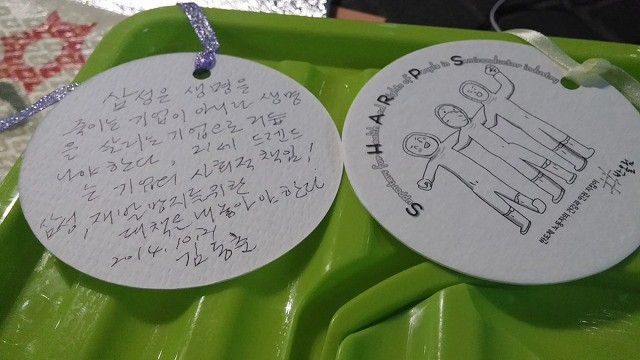 삼성은 생명을
죽이는 기업이 아니라 생명
을 살리는 기업으로 거듭
나야한다,
는 기업의 사회적 책임!
삼성, 재발방지를위한
대책을 내놓아야한다
2014.
SHARPS
Health And Rights of People in Semiconductor industry
반도체 노동자의 건강과 인권 지킴이
반올림